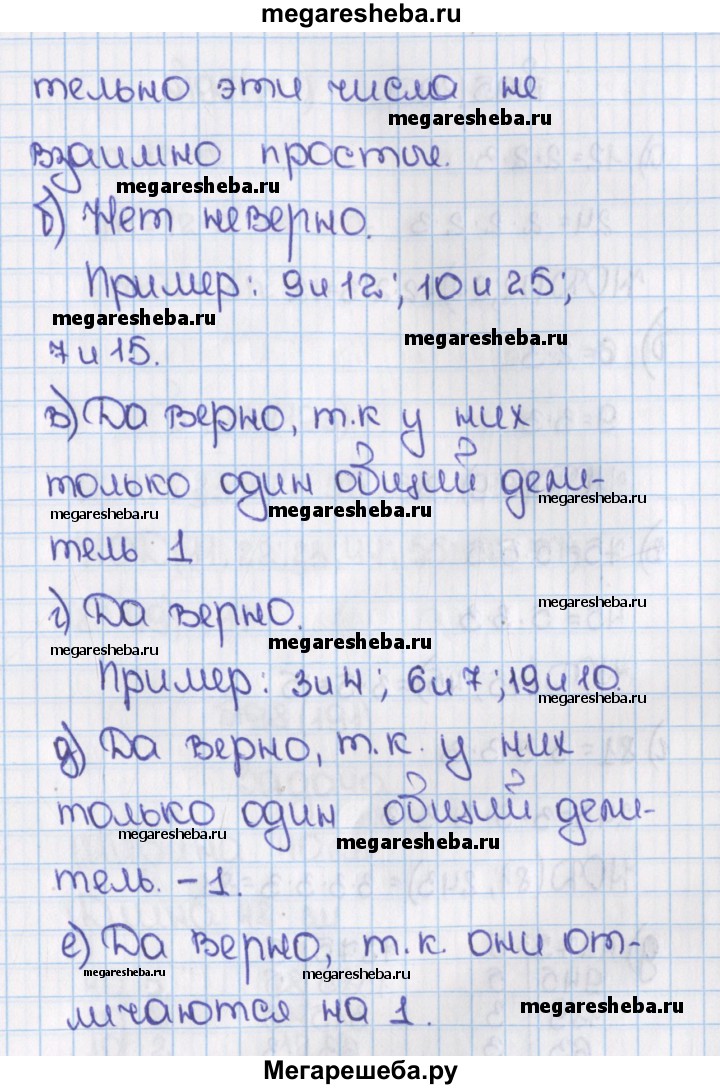 megaresheba.ru
тельно эти числа не
megaresheba.ru
взаимно простые.
megaresheba.ru
б) Нет неверно.
Пример: 9 и 12; 10 и 25;
megaresheba.ru
megaresheba.ru
7 и 15.
в) Да верно, т.к у них
только один общий дели-
megaresheba.ru
megaresheba.ru
megaresheba.ru
тель 1
megaresheba.ru
г) Да верно.
megaresheba.ru
megaresheba.ru
Пример: 3 и 4; 6 и 7; 19 и 10.
megaresheba.ru
д) Да верно, т.к. у них
только один общий дели-
megaresheba.ru
megaresheba.ru
тель. - 1.
е) Да верно, т.к. они от-
megaresheba.ru
megaresheba.ru
личаются на 1.
megaresheba.ru
Мегарешеба.ру